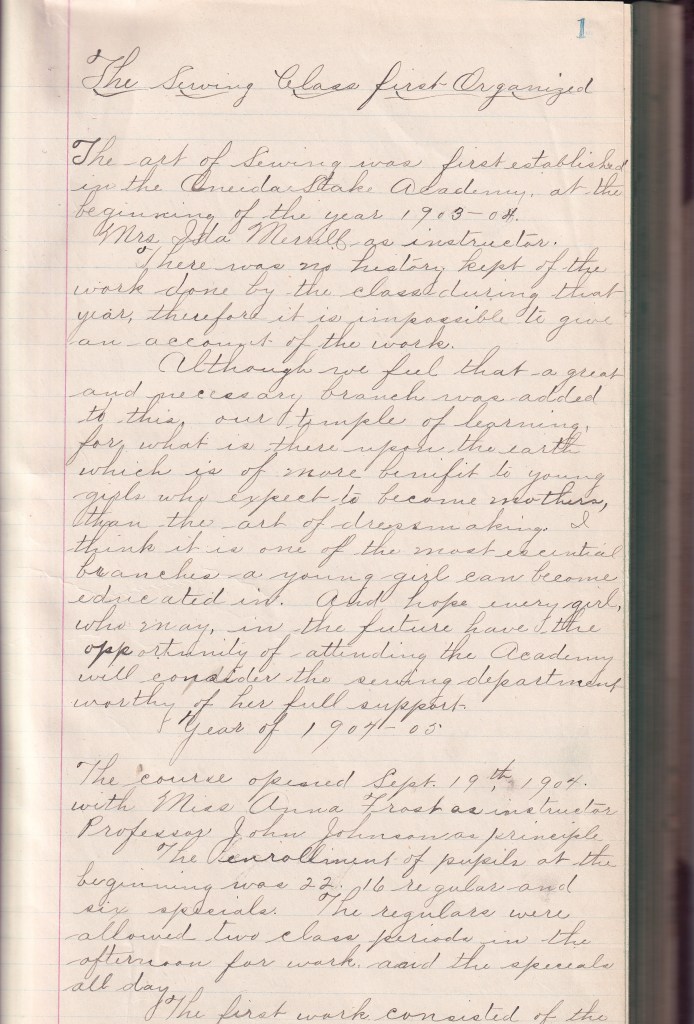 1
The Sewing Class first Organized
The art of Sewing was first established
in the Oneida Stake Academy, at the
beginning of the year 1903-04.
Mrs Ida Merrill as instructor.
There was no history kept of the
work done by the class during that
year, therefore it is impossible to give
an account of the work.
Although we feel that a great
and necessary branch was added
to this, our temple of learning,
for, what is there upon the earth
which is of more benifit to young
girls who expect to become mothers,
than the art of dressmaking. I
think it is one of the most escential
branches a young girl can become
educated in. And hope every girl,
who may, in the future have the
opportunity of attending the Academy
will consider the sewing department
worthy of her full support.
Year of 1904-05
The course opened Sept. 19th, 1904.
with Miss Anna Frost as instructor
Professor John Johnson as principle
The enrollment of pupils at the
beginning was 22. 16 regular and
six specials. The regulars were
allowed two class periods in the
afternoon for work and the specials
all day.
The first work consisted of the